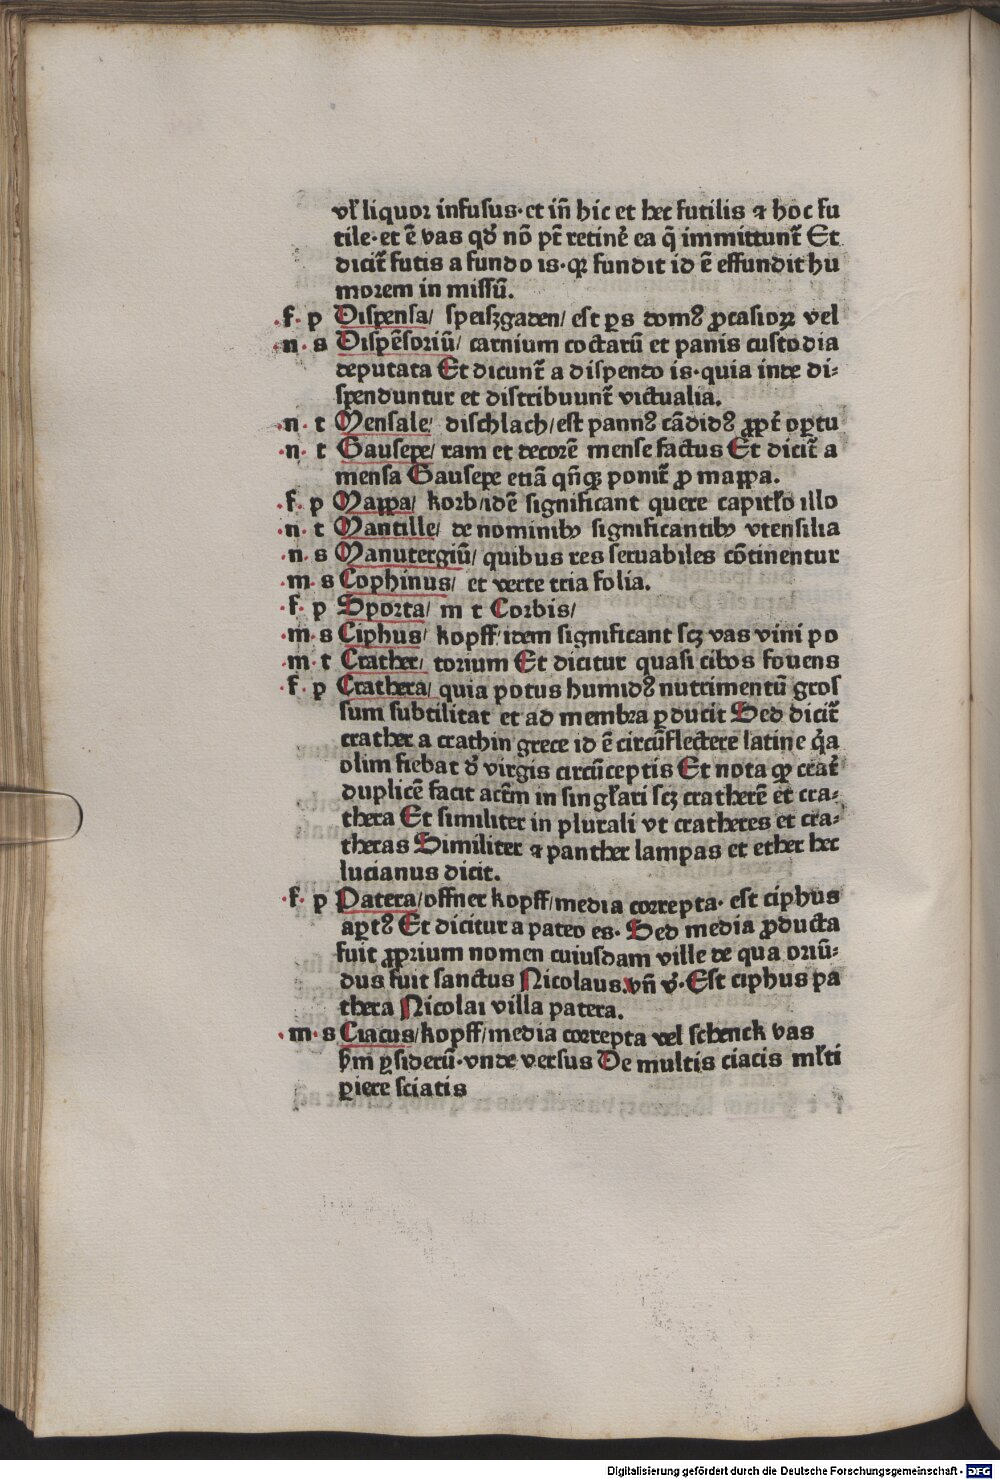 vl̛ liquor infusus·et in̄ hic et hec futilis ⁊ hoc fu
tile·et ē vas qd̛ nō pt̄ retine᷑ ea q̄ immittunt᷑ Et
dicit᷑ futis a fundo is·qꝛ fundit id ē effundit hu
morem in missū.
·f· p Dispensa/ speiszgaden/ est ꝑs domꝰ ꝓcasioꝝ vel
·n· s Dispēsoriū/ carnium coctarū et panis custodia
deputata Et dicunt᷑ a dispendo is·quia inde di⸗
spenduntur et distribuunt᷑ victualia.
·n· t Mensale/ dischlach/est pannꝰ cādidꝰ ꝓpt᷑ oꝑtu
·n· t Gausepe/ ram et decorē mense factus Et dicit᷑ a
mensa Gausepe etiā qn̄qꝫ ponit᷑ ꝓ mappa.
·f· p Mappa/ korb/idē significant quere capitl̛o illo
·n· t Mantille/ de nominibꝰ significantibꝰ vtensilia
·n· s Manutergiū/ quibus res seruabiles cōtinentur
·m· s Cophinus/ et verte tria folia.
·f· p Sporta/ m t Corbis/
·m· s Ciphus/ kopff/idem significant scꝫ vas vini po
·m· t Crather/ torium Et dicitur quasi cibos fouens
·f· p Crathera/ quia potus humidꝰ nutrimentū gros
sum subtilitat et ad membra ꝑducit Sed dicit᷑
crather a crathin grece id ē circūflectere latine q̛a
olim fiebat d̛ virgis circūceptis Et nota ꝙ crat᷑
duplicē facit actm̄ in singl̛ari scꝫ cratherē et cra⸗
thera Et similiter in plurali vt cratheres et cra⸗
theras Similiter ⁊ panther lampas et ether hec
lucianus dicit.
·f· p Patera/offner kopff/media correpta· est ciphus
aꝑtꝰ Et dicitur a pateo es· Sed media ꝓducta
fuit ꝓprium nomen cuiusdam ville de qua oriū⸗
dus fuit sanctus Nicolaus.vn̄ v̛·Est ciphus pa
thera Nicolai villa patera.
·m· s Ciacus/kopff/media correpta vel schenck vas
ẜm ꝑsiderū·vnde versus De multis ciacis ml̛ti
ꝑiere sciatis
Digitalisierung gefördert durch die Deutsche Forschungsgemeinschaft - DFG